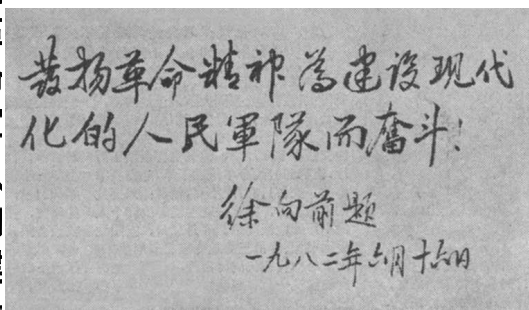 發扬革命精神为建设现代
化的人民軍隊而奮斗！
徐向前题
一九八二年六月十六日